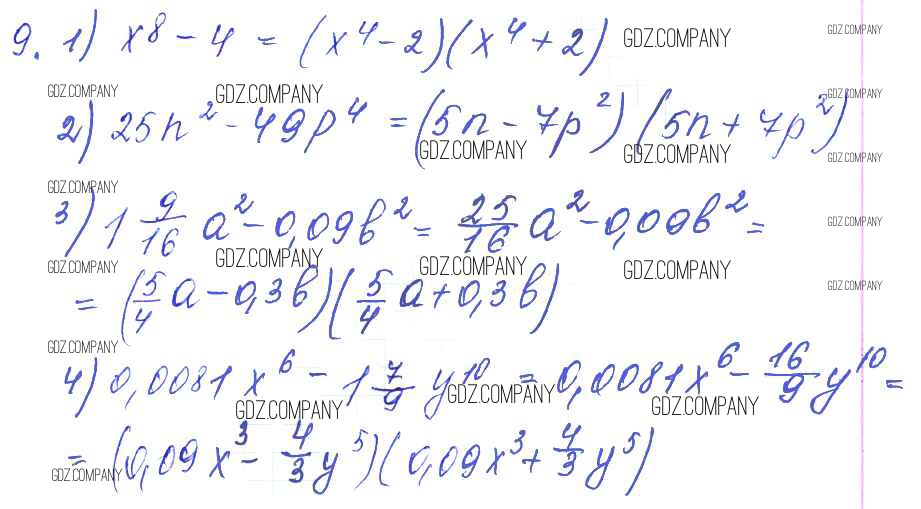 9. 1) x⁸ - 4 = (x⁴ - 2)(x⁴ + 2) GDZ.COMPANY GDZ.COMPANY
GDZ.COMPANY GDZ.COMPANY GDZ.COMPANY
2) 25n² - 49p⁴ = (5n - 7p²)(5n + 7p²)
GDZ.COMPANY GDZ.COMPANY GDZ.COMPANY
GDZ.COMPANY
3) 1 9/16 a² - 0,09b² = 25/16 a² - 0,09b² = GDZ.COMPANY
GDZ.COMPANY GDZ.COMPANY GDZ.COMPANY GDZ.COMPANY
= (5/4 a - 0,3b)(5/4 a + 0,3b) GDZ.COMPANY
GDZ.COMPANY
4) 0,0081x⁶ - 1 7/9 y¹⁰ = 0,0081x⁶ - 16/9 y¹⁰ =
GDZ.COMPANY GDZ.COMPANY GDZ.COMPANY
= (0,09x³ - 4/3 y⁵)(0,09x³ + 4/3 y⁵)
GDZ.COMPANY